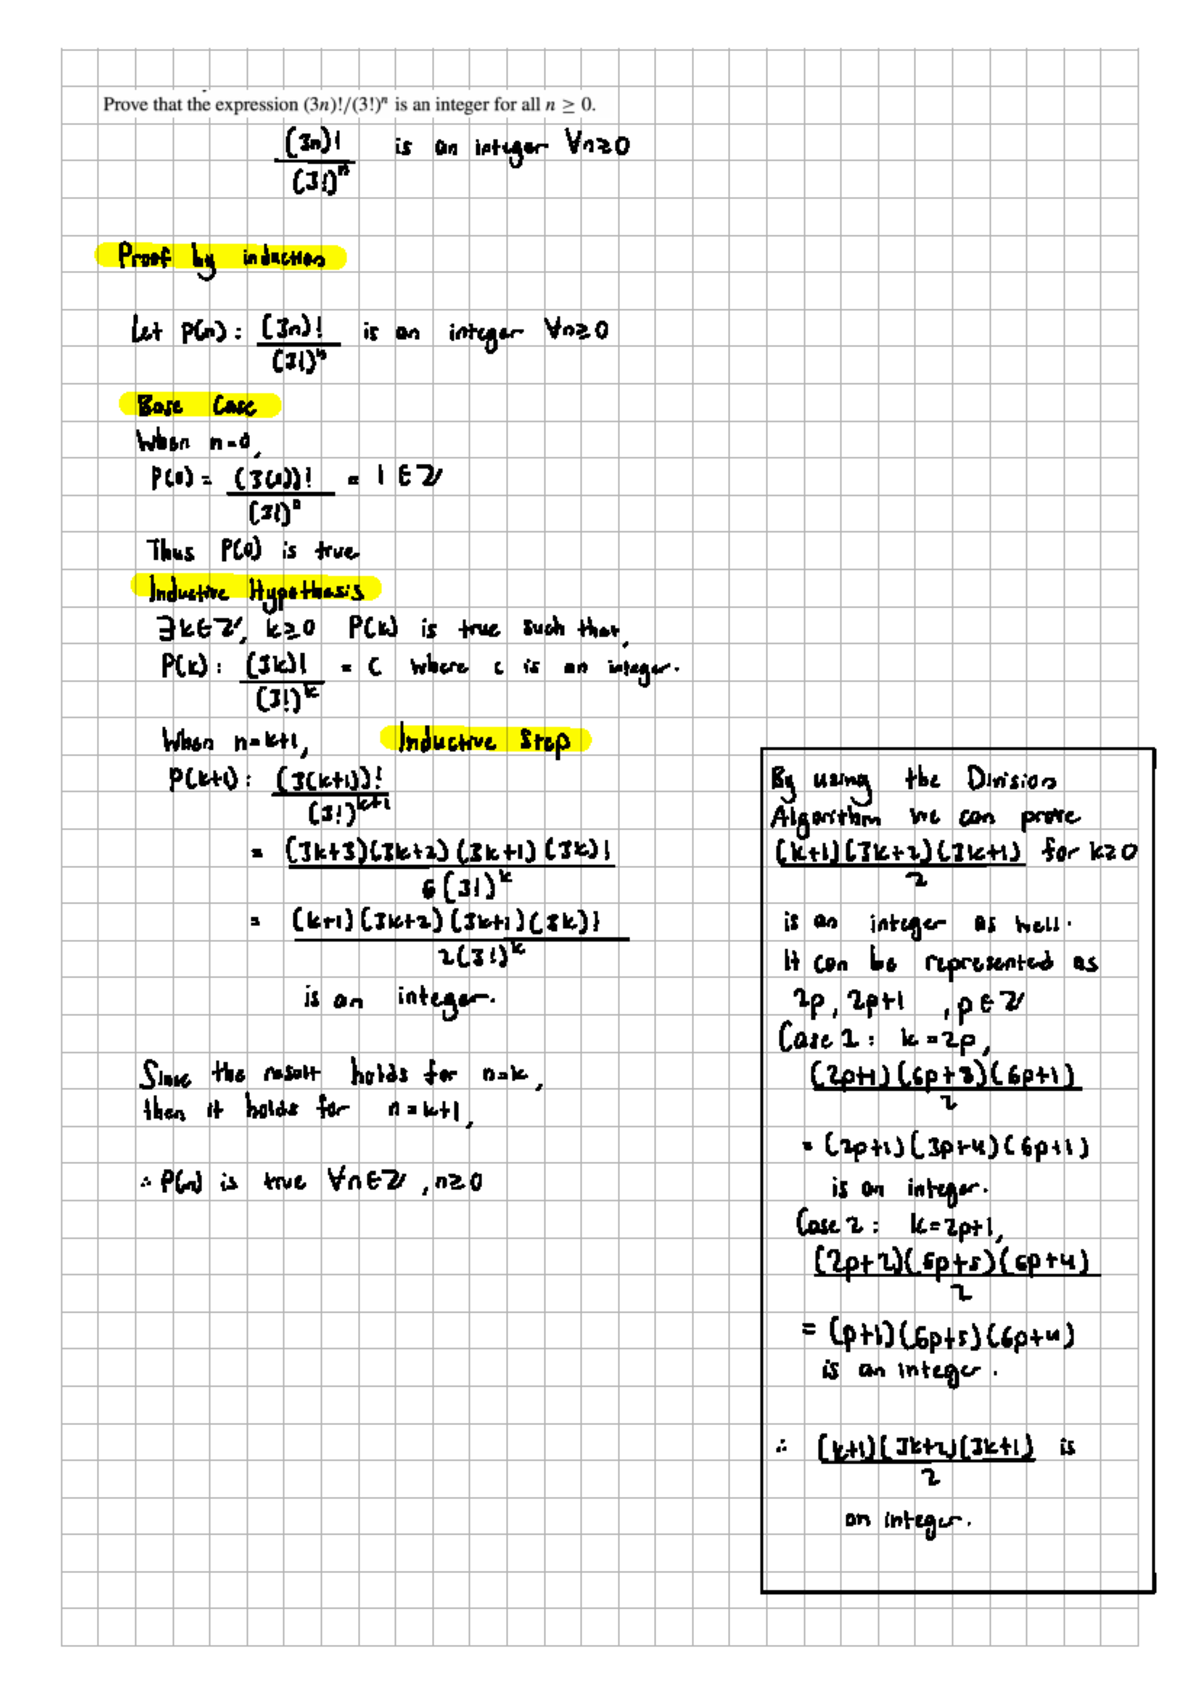 Prove that the expression (3n)!/(3!)ⁿ is an integer for all n ≥ 0.
(3n)! / (3!)ⁿ is an integer ∀n≥0
Proof by induction
Let P(n): (3n)! / (3!)ⁿ is an integer ∀n≥0
Base Case
When n=0,
P(0) = (3(0))! / (3!)⁰ = 1 ∈ ℤ
Thus P(0) is true
Inductive Hypothesis
∃k∈ℤ, k≥0 P(k) is true such that,
P(k): (3k)! / (3!)ᵏ = c where c is an integer.
When n=k+1, Inductive Step
P(k+1): (3(k+1))! / (3!)ᵏ⁺¹
= (3k+3)(3k+2)(3k+1)(3k)! / 6(3!)ᵏ
= (k+1)(3k+2)(3k+1)(3k)! / 2(3!)ᵏ
is an integer.
Since the result holds for n=k,
then it holds for n=k+1,
∴ P(n) is true ∀n∈ℤ, n≥0
By using the Division
Algorithm we can prove
(k+1)(3k+2)(3k+1) / 2 for k≥0
is an integer as well.
It can be represented as
2p, 2p+1 , p∈ℤ
Case 1: k=2p,
(2p+1)(6p+8)(6p+1) / 2
= (2p+1)(3p+4)(6p+1)
is an integer.
Case 2: k=2p+1,
(2p+2)(6p+5)(6p+4) / 2
= (p+1)(6p+5)(6p+4)
is an integer.
∴ (k+1)(3k+2)(3k+1) / 2 is
an integer.